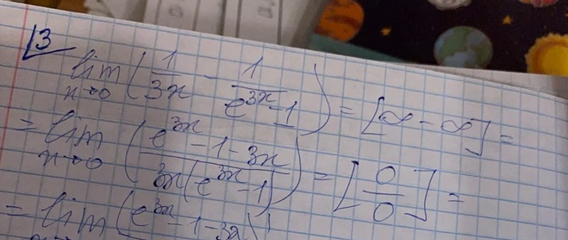 3
lim x→0 (1/3x - 1/(e^3x - 1)) = [∞ - ∞] =
= lim x→0 ((e^3x - 1 - 3x)/(3x(e^3x - 1))) = [0/0] =
= lim (e^3x - 1 - 3x)'